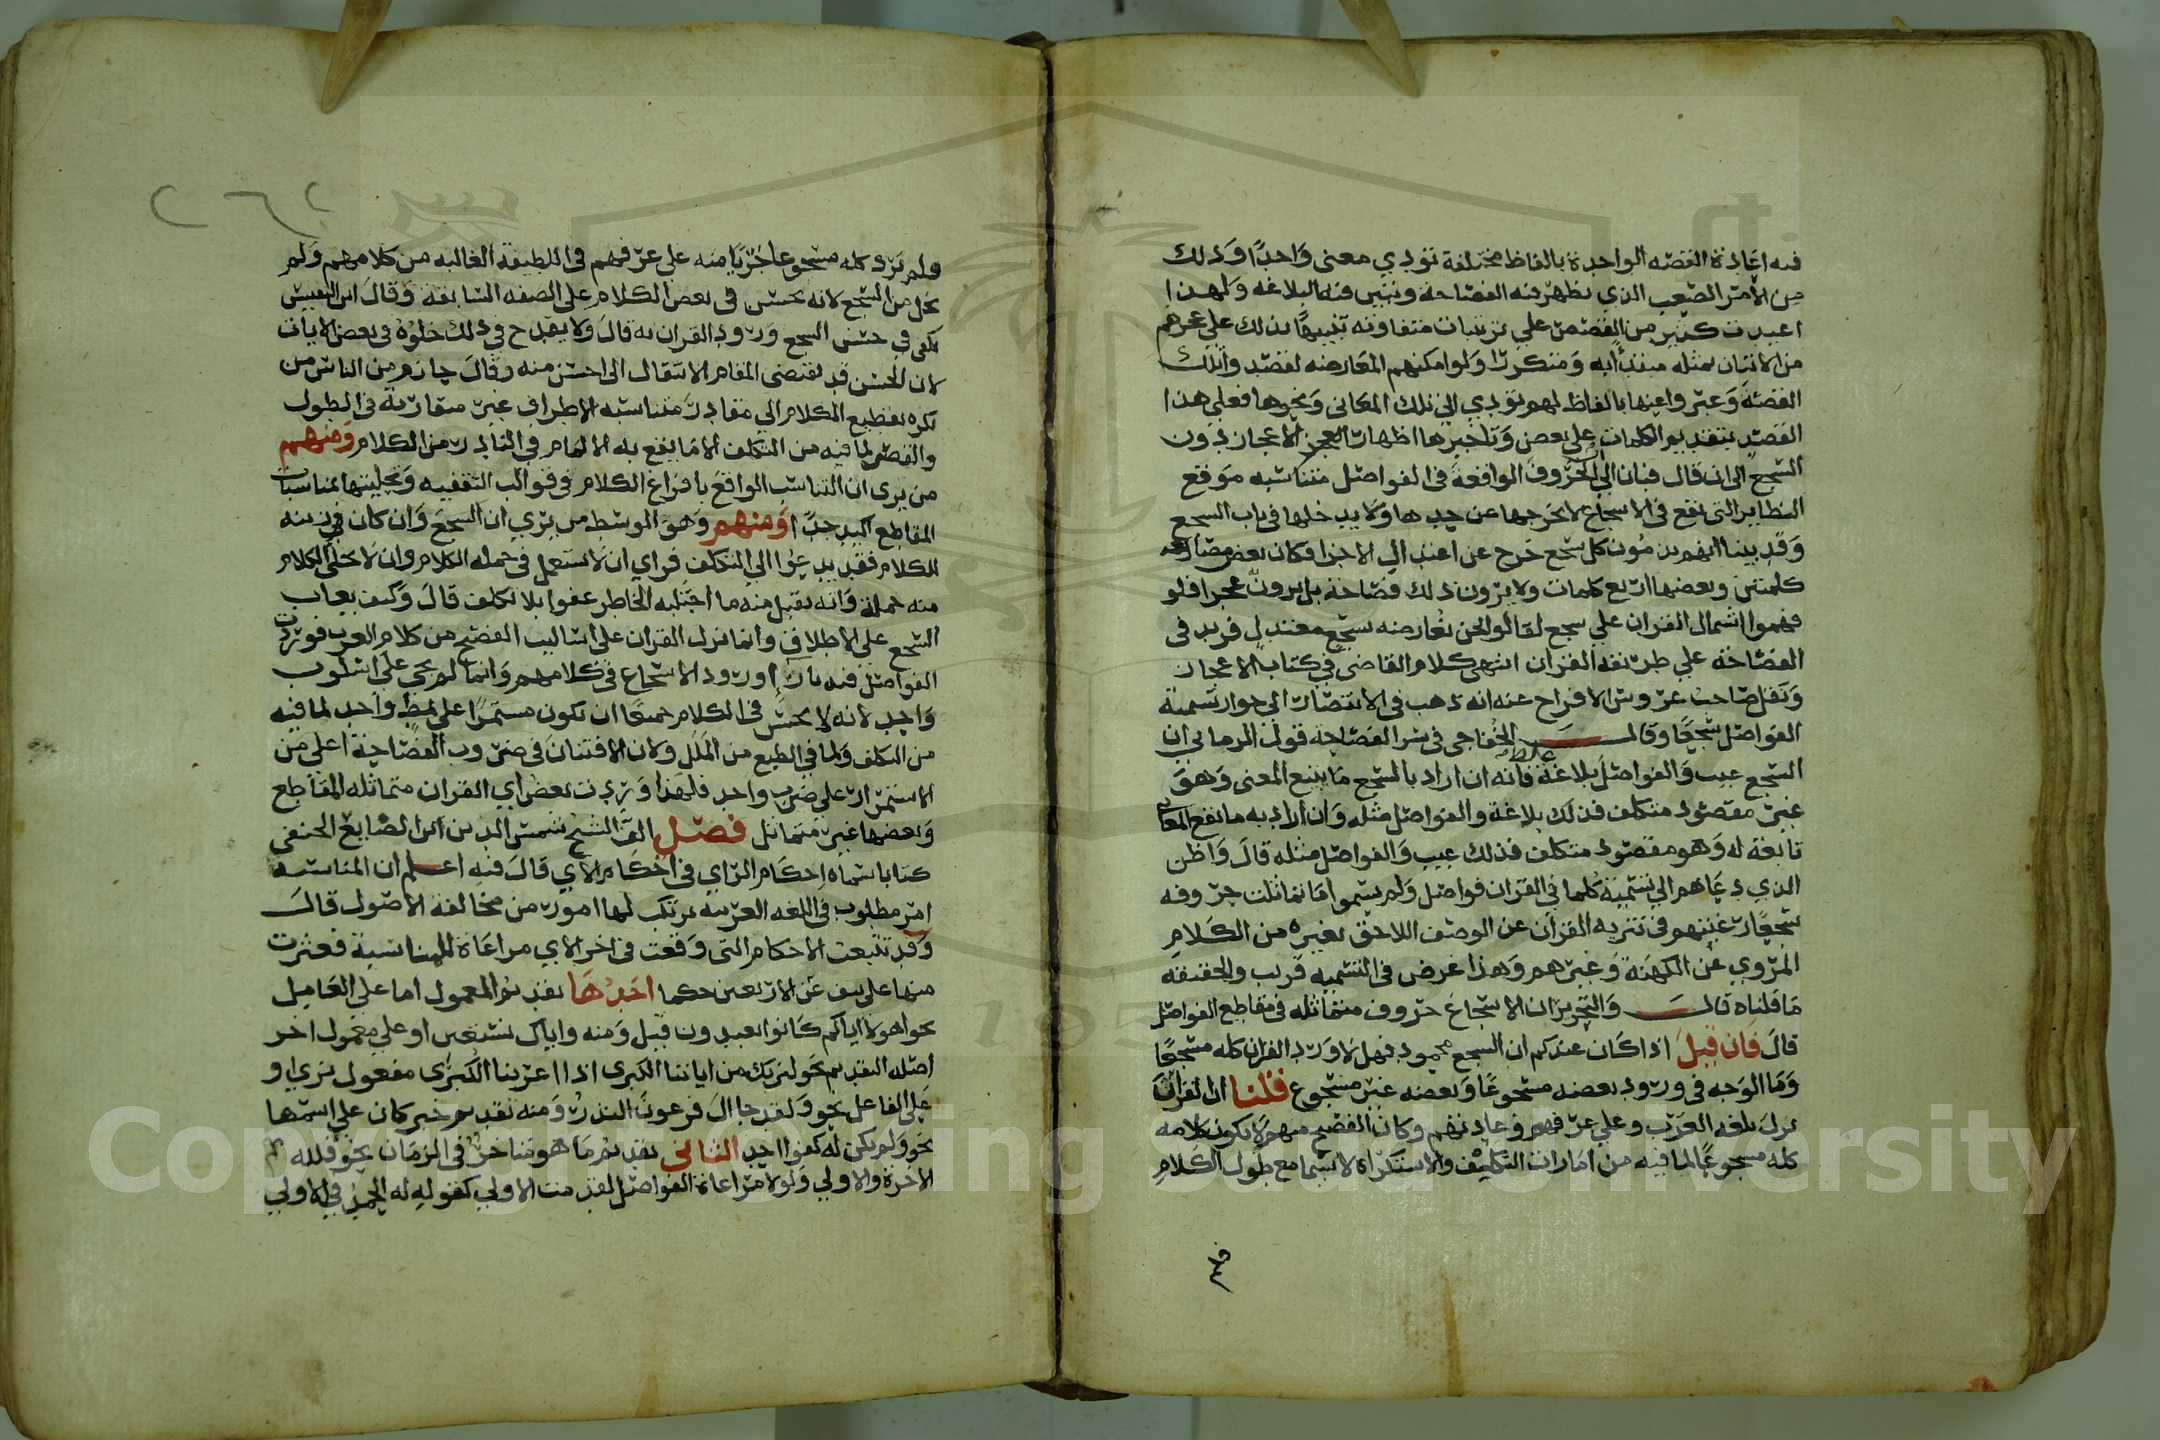 فيه اعادة القصه الواحدة بالفاظ مختلفة تودي معنى واحدًا وذلك
من الامر الصعب الذي تظهر فيه الفصاحة وتتبين فيه البلاغه ولهذا
اعيدت كثير من القصص علي ترتيبات متفاوته تنبيهًا بذلك علي عجزهم
من الاتيان بمثله مبتدأ به ومتكررًا ولو امكنهم المعارضه لقصدوا تلك
القصة وعبروا عنها بالفاظ لهم تودي الي تلك المعاني ونحوها فعلي هذا
القصد بتقديم الكلمات علي بعض وتاخيرها اظهار الاعجاز دون
السجع الى ان قال فبان ان الحروف الواقعة في الفواصل متناسبه موقع
النظاير التي تقع في الاسجاع لا تخرجها عن حدها ولا يدخلها في باب السجع
وقد بينا انهم يذمون كل سجع خرج عن اعتدال الاجزا فكان بعض مصاريعه
كلمتين وبعضها اربع كلمات ولا يرون ذلك فصاحة بل يرونه عجزا فلو
فهموا اشتمال القران علي سجع لقالوا نحن نعارضه بسجع معتدل فيزيد في
الفصاحة علي طريقة القران انتهى كلام القاضي في كتاب الاعجاز
ونقل صاحب عروس الافراح عنه انه ذهب في الانتصار الى جواز تسمية
الفواصل سجعًا وقال الخفاجي في سر الفصاحة قول الرماني ان
السجع عيب والفواصل بلاغة غلط فانه ان اراد بالسجع ما يتبع المعنى وهو
غير مقصود متكلف فذلك بلاغة والفواصل مثله وان اراد به ما تقع المعاني
تابعة له وهو مقصود متكلف فذلك عيب والفواصل مثله قال واظن
الذي دعاهم الي تسمية كلما في القران فواصل ولم يسموا ما تماثلت حروفه
سجعًا رغبتهم في تنزيه القرآن عن الوصف اللاحق بغيره من الكلام
المروي عن الكهنة وغيرهم وهذا غرض في التسميه قريب والحقيقه
ما قلناه قال والتحرير ان الاسجاع حروف متماثله في مقاطع الفواصل
قال فان قيل اذا كان عندكم ان السجع محمود فهلا ورد القران كله مسجعًا
وما الوجه في ورود بعضه مسجوعًا وبعضه غير مسجوع قلنا ان القرآن
نزل بلغه العرب وعلي عرفهم وعادتهم وكان الفصيح منهم لا يكون كلامه
كله مسجوعًا لما فيه من امارات التكليف والاستكراه لا سيما مع طول الكلام
فلم
ولم يرد كله مسجوعا جريًا منه على عرفهم في اللطيفة الغالبه من كلامهم ولم
يخل من السجع لانه يحسن في بعض الكلام على الصفه السابقة وقال ابن النفيس
يكفي في حسن السجع ورود القران به قال ولا يقدح في ذلك خلوه في بعض الايات
لان الحسن قد يقتضي المقام الانتقال الى احسن منه وقال حازم من الناس من
يكره تقطيع الكلام الي مقادير متناسبه الاطراف غير متقاربة في الطول
والقصر لما فيه من التكلف الا ما يقع به الالمام في النادر من الكلام ومنهم
من يرى ان التناسب الواقع بافراغ الكلام في قوالب التقفيه وتحليتها بمناسبات
المقاطع اكيد جدا ومنهم وهو الوسط من يري ان السجع وان كان زينه
للكلام فقد يدعوا الي التكلف فراي ان لا يستعمل في جمله الكلام وان لا يخلى الكلام
منه جملة وانه يقبل منه ما اجتلبه الخاطر عفوا بلا تكلف قال وكيف يعاب
السجع علي الاطلاق وانما نزل القران على اساليب الفصيح من كلام العرب فوردت
الفواصل فيه بازاء ورود الاسجاع في كلامهم وانما لم يجى على اسلوب
واحد لانه لا يحسن في الكلام جميعًا ان يكون مستمرًا على نمط واحد لما فيه
من التكلف ولما في الطبع من الملل ولان الافتنان في ضروب الفصاحة اعلى من
الاستمرار علي ضرب واحد فلهذا وردت بعض اي القران متماثله المقاطع
وبعضها غير متماثل فصل الف الشيخ شمس الدين ابن الصايغ الحنفي
كتابا سماه احكام الراي في احكام الآي قال فيه اعلم ان المناسبه
امر مطلوب في اللغه العربيه يرتكب لها امور من مخالفة الاصول قال
وقد تتبعت الاحكام التى وقعت في اخر الاي مراعاة للمناسبة فعثرت
منها على نيف عن الاربعين حكما احدها تقديم المعمول اما على العامل
نحو اهولا اياكم كانوا يعبدون قيل ومنه واياك نستعين او علي معمول اخر
اصله التقديم نحو لنريك من اياتنا الكبرى اذا اعربنا الكبرى مفعول نري او
علي الفاعل نحو ولقد جا ال فرعون النذر ومنه تقديم خبر كان علي اسمها
نحو ولم يكن له كفوا احد الثاني تقديم ما هو متاخر في الزمان نحو فلله
الاخرة والاولي ولولا مراعاة الفواصل لقدمت الاولي كقوله له الحمد في الاولي
Copyright © King Saud University